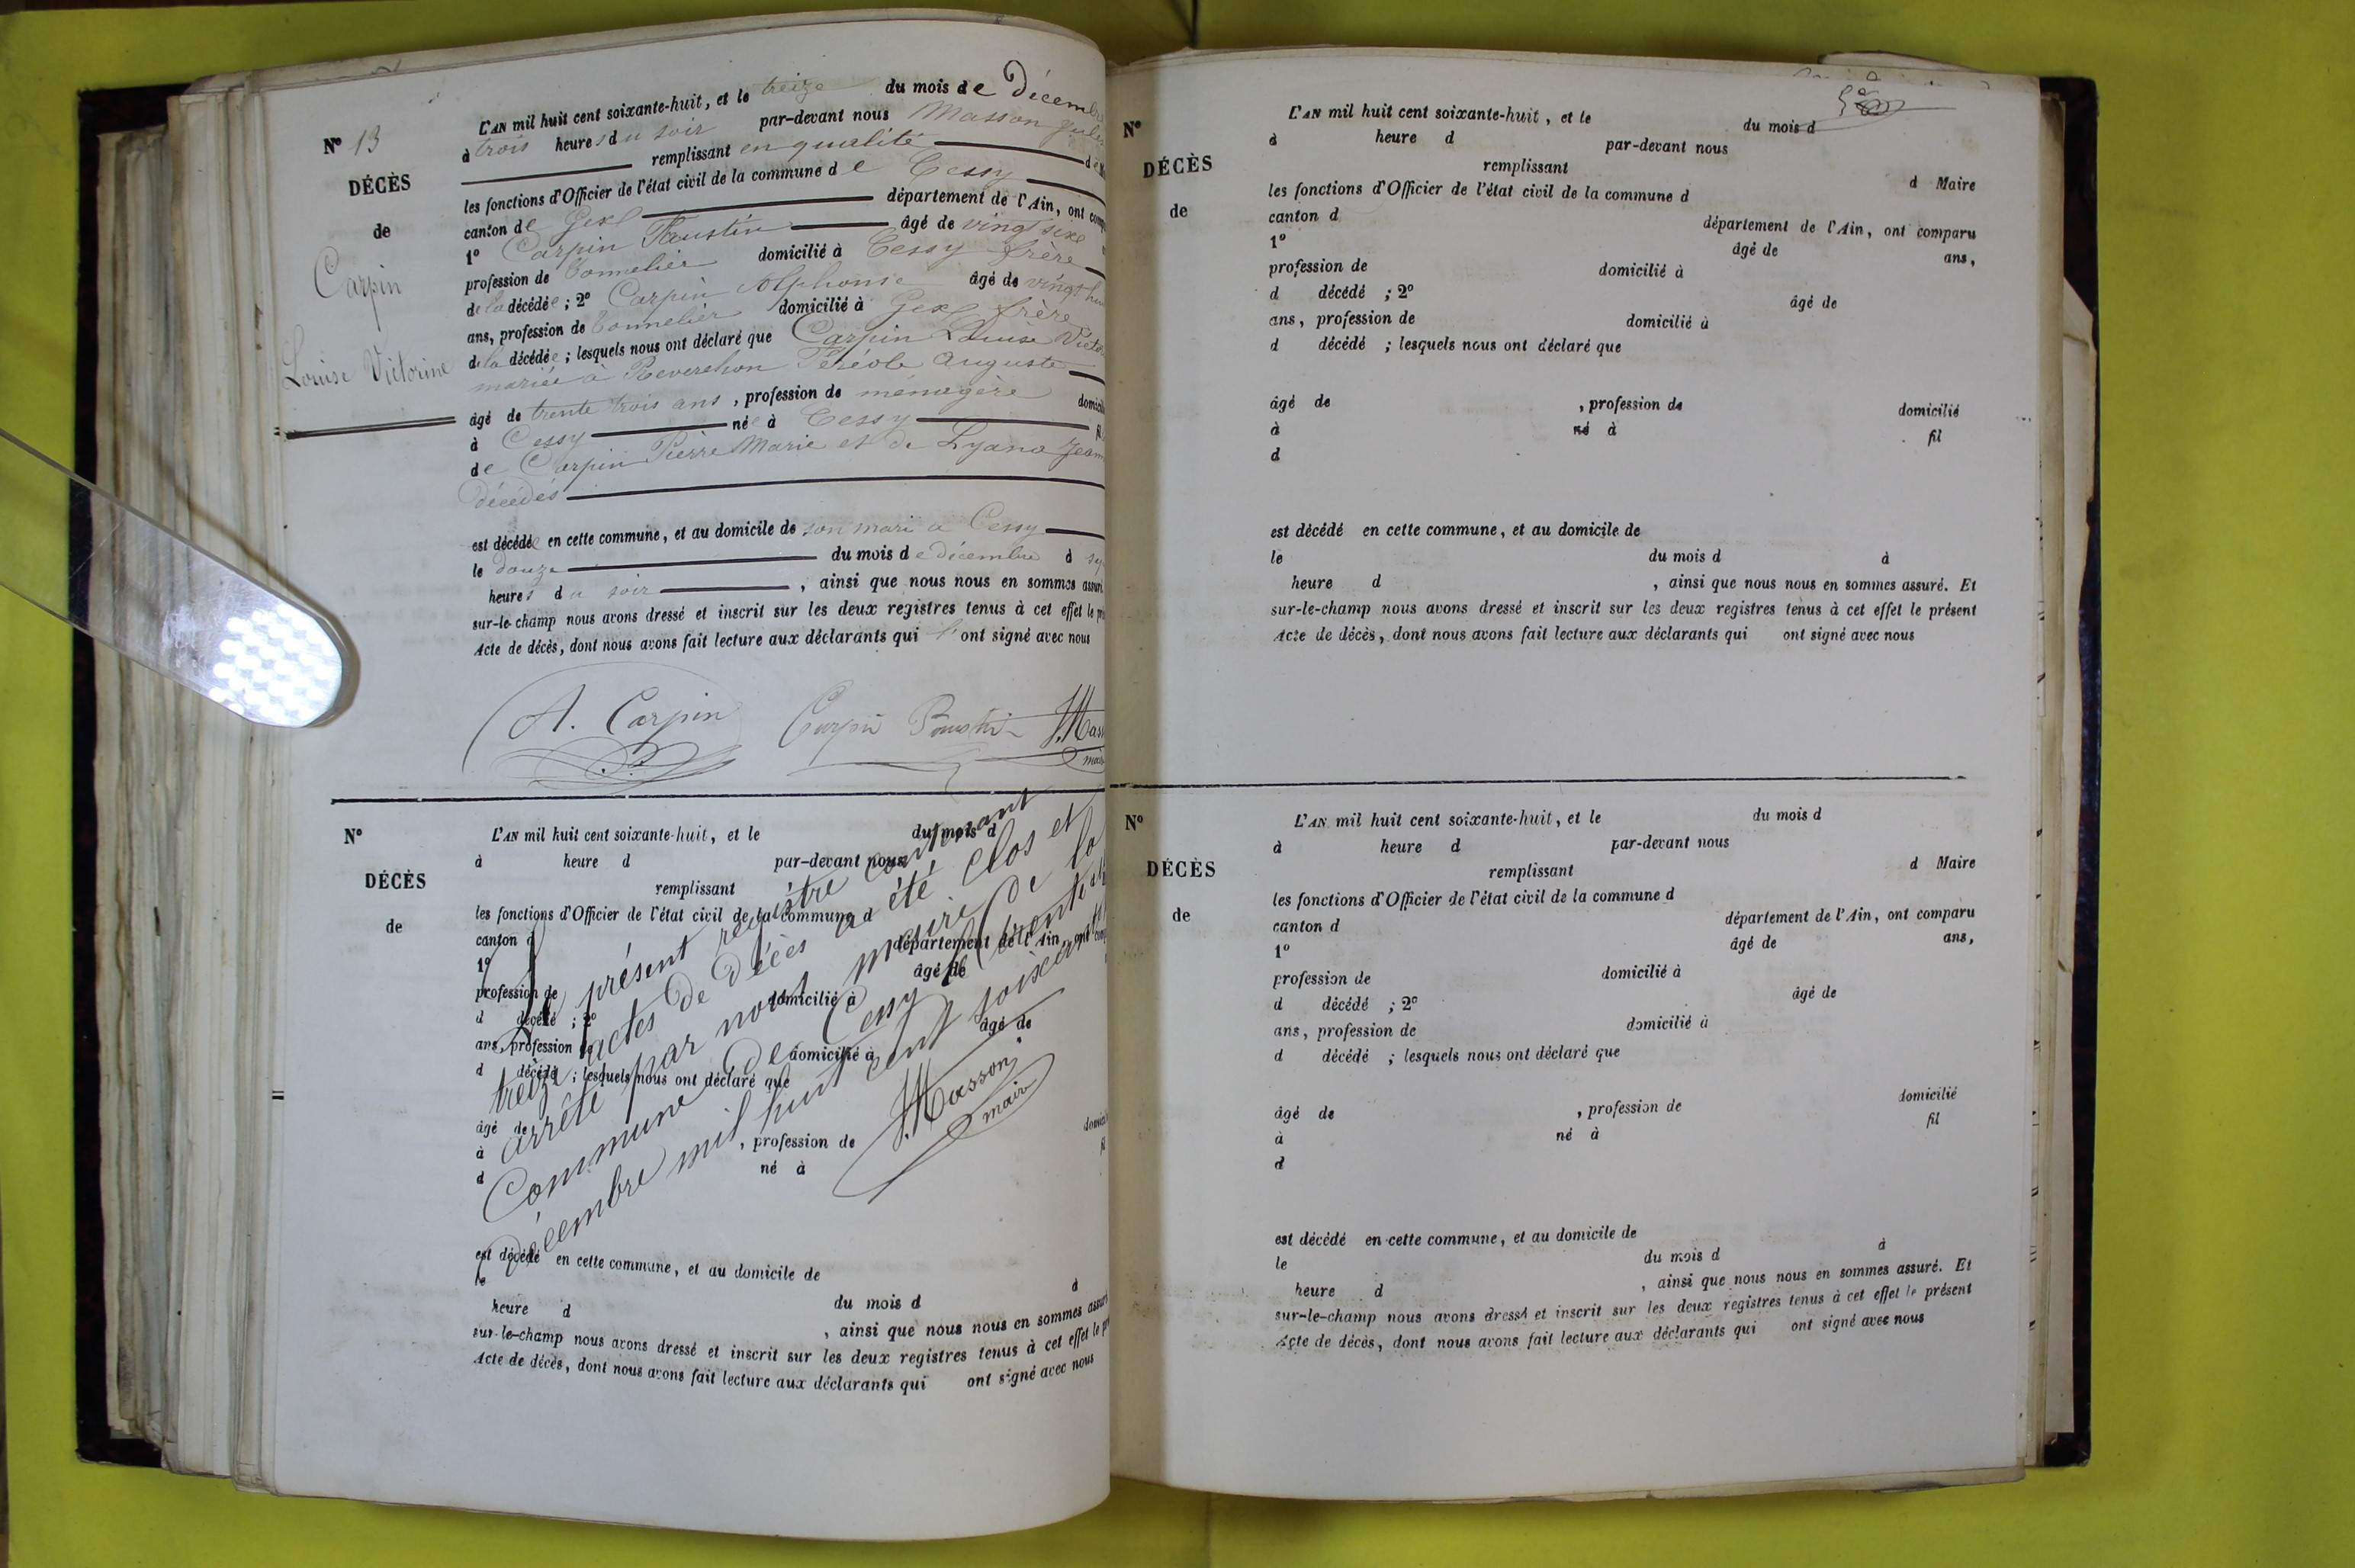 N° 13
DÉCÈS
de
Carpin
Louise Victorine
L'AN mil huit cent soixante-huit, et le treize du mois de Décem
à trois heures du soir par-devant nous Masson Jules
remplissant en qualité de
les fonctions d'Officier de l'état civil de la commune de Cessy
canton de Gex département de l'Ain, ont
1° Carpin Faustin âgé de vingt six
profession de Tonnelier domicilié à Cessy frère
de la décédée ; 2° Carpin Alphonse âgé de vingt
ans, profession de tonnelier domicilié à Gex frère
de la décédée ; lesquels nous ont déclaré que Carpin Louise
mariée à Reverchon Auguste
âgé de trente trois ans , profession de ménagère
à Cessy née à Cessy
de Carpin Pierre Marie et de Lyana
décédés
est décédée en cette commune, et au domicile de son mari à Cessy
le douze du mois de décembre à
heures du soir , ainsi que nous nous en sommes
sur-le-champ nous avons dressé et inscrit sur les deux registres tenus à cet effet le
Acte de décès, dont nous avons fait lecture aux déclarants qui l' ont signé avec nous
A. Carpin Carpin J. Mass
N°
DÉCÈS
de
L'AN mil huit cent soixante-huit, et le du mois d
à heure d par-devant nous
remplissant
les fonctions d'Officier de l'état civil de la commune d
canton d département de l'Ain, ont
1° âgé de
profession de domicilié à
d décédé ; 2° âgé de
ans, profession de domicilié à
d décédé ; lesquels nous ont déclaré que
âgé de , profession de
à né à
d
Le présent registre contenant
treize actes de Décès a été clos et
arrêté par nous maire de la
Commune de Cessy le trente
Décembre mil huit cent soixante
J. Masson
maire
est décédé en cette commune, et au domicile de
le du mois d à
heure d , ainsi que nous nous en sommes
sur-le-champ nous avons dressé et inscrit sur les deux registres tenus à cet effet le
Acte de décès, dont nous avons fait lecture aux déclarants qui ont signé avec nous
N°
DÉCÈS
de
L'AN mil huit cent soixante-huit, et le du mois d
à heure d par-devant nous
remplissant d Maire
les fonctions d'Officier de l'état civil de la commune d
canton d département de l'Ain, ont comparu
1° âgé de ans,
profession de domicilié à
d décédé ; 2° âgé de
ans, profession de domicilié à
d décédé ; lesquels nous ont déclaré que
âgé de , profession de domicilié
à né à fil
d
est décédé en cette commune, et au domicile de
le du mois d à
heure d , ainsi que nous nous en sommes assuré. Et
sur-le-champ nous avons dressé et inscrit sur les deux registres tenus à cet effet le présent
Acte de décès, dont nous avons fait lecture aux déclarants qui ont signé avec nous
N°
DÉCÈS
de
L'AN mil huit cent soixante-huit, et le du mois d
à heure d par-devant nous
remplissant d Maire
les fonctions d'Officier de l'état civil de la commune d
canton d département de l'Ain, ont comparu
1° âgé de ans,
profession de domicilié à
d décédé ; 2° âgé de
ans, profession de domicilié à
d décédé ; lesquels nous ont déclaré que
âgé de , profession de domicilié
à né à fil
d
est décédé en cette commune, et au domicile de
le du mois d à
heure d , ainsi que nous nous en sommes assuré. Et
sur-le-champ nous avons dressé et inscrit sur les deux registres tenus à cet effet le présent
Acte de décès, dont nous avons fait lecture aux déclarants qui ont signé avec nous